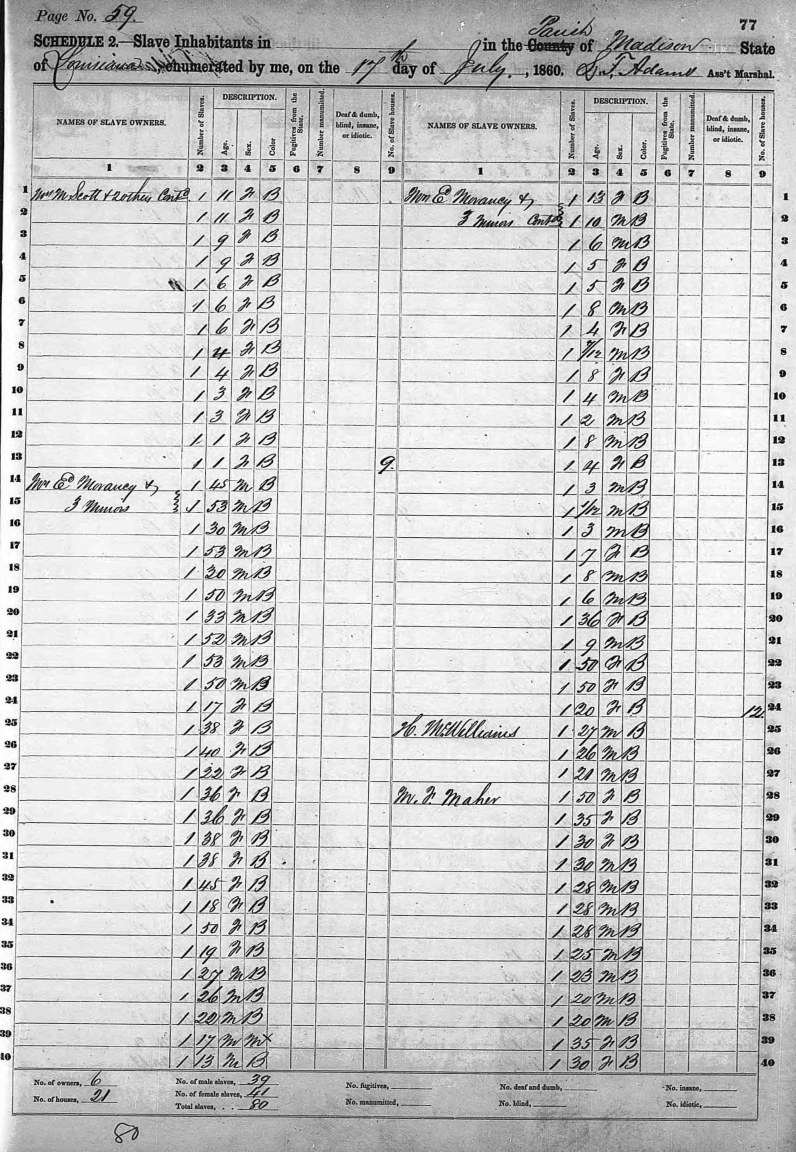 Page No. 59.
77
SCHEDULE 2.—Slave Inhabitants in in the County Parish of Madison State
of Louisiana, enumerated by me, on the 17th day of July, 1860. D. F. Adams Ass't Marshal.
NAMES OF SLAVE OWNERS. Number of Slaves. DESCRIPTION. Age. Sex. Color Fugitives from the State. Number manumitted. Deaf & dumb, blind, insane, or idiotic. No. of Slave houses. NAMES OF SLAVE OWNERS. Number of Slaves. DESCRIPTION. Age. Sex. Color. Fugitives from the State. Number manumitted. Deaf & dumb, blind, insane, or idiotic. No. of Slave houses.
1 2 3 4 5 6 7 8 9 1 2 3 4 5 6 7 8 9
1 M Scott & 2 others Contd 1 11 F B E Morancy & 1 13 F B 1
2 1 11 F B 3 Minors Contd 1 10 M B 2
3 1 9 F B 1 6 M B 3
4 1 9 F B 1 5 F B 4
5 1 6 F B 1 5 F B 5
6 1 6 F B 1 8 M B 6
7 1 6 F B 1 4 F B 7
8 1 4 F B 1 /12 M B 8
9 1 4 F B 1 8 F B 9
10 1 3 F B 1 4 M B 10
11 1 3 F B 1 2 M B 11
12 1 1 F B 1 8 M B 12
13 1 1 F B 9. 1 4 F B 13
14 Ed Morancy & 1 45 M B 1 3 M B 14
15 3 Minors 1 53 M B 1 /12 M B 15
16 1 30 M B 1 3 M B 16
17 1 53 M B 1 7 F B 17
18 1 30 M B 1 8 M B 18
19 1 50 M B 1 6 M B 19
20 1 33 M B 1 36 F B 20
21 1 52 M B 1 9 M B 21
22 1 53 M B 1 50 F B 22
23 1 50 M B 1 50 F B 23
24 1 17 F B 1 20 F B 12. 24
25 1 38 F B H. McWilliams 1 27 M B 25
26 1 40 F B 1 26 M B 26
27 1 22 F B 1 21 M B 27
28 1 36 F B M. F. Maher 1 50 F B 28
29 1 36 F B 1 35 F B 29
30 1 38 F B 1 30 F B 30
31 1 38 F B 1 30 M B 31
32 1 45 F B 1 28 M B 32
33 1 18 F B 1 28 M B 33
34 1 50 F B 1 28 M B 34
35 1 19 F B 1 25 M B 35
36 1 27 M B 1 23 M B 36
37 1 26 M B 1 20 M B 37
38 1 22 M B 1 20 M B 38
39 1 17 M 1 35 F B 39
40 1 13 M B 1 30 F B 40
No. of owners, 6 No. of male slaves, 39 No. fugitives, No. deaf and dumb, No. insane,
No. of houses, 21 No. of female slaves, 41 No. manumitted, No. blind, No. idiotic,
Total slaves, . . 80
80